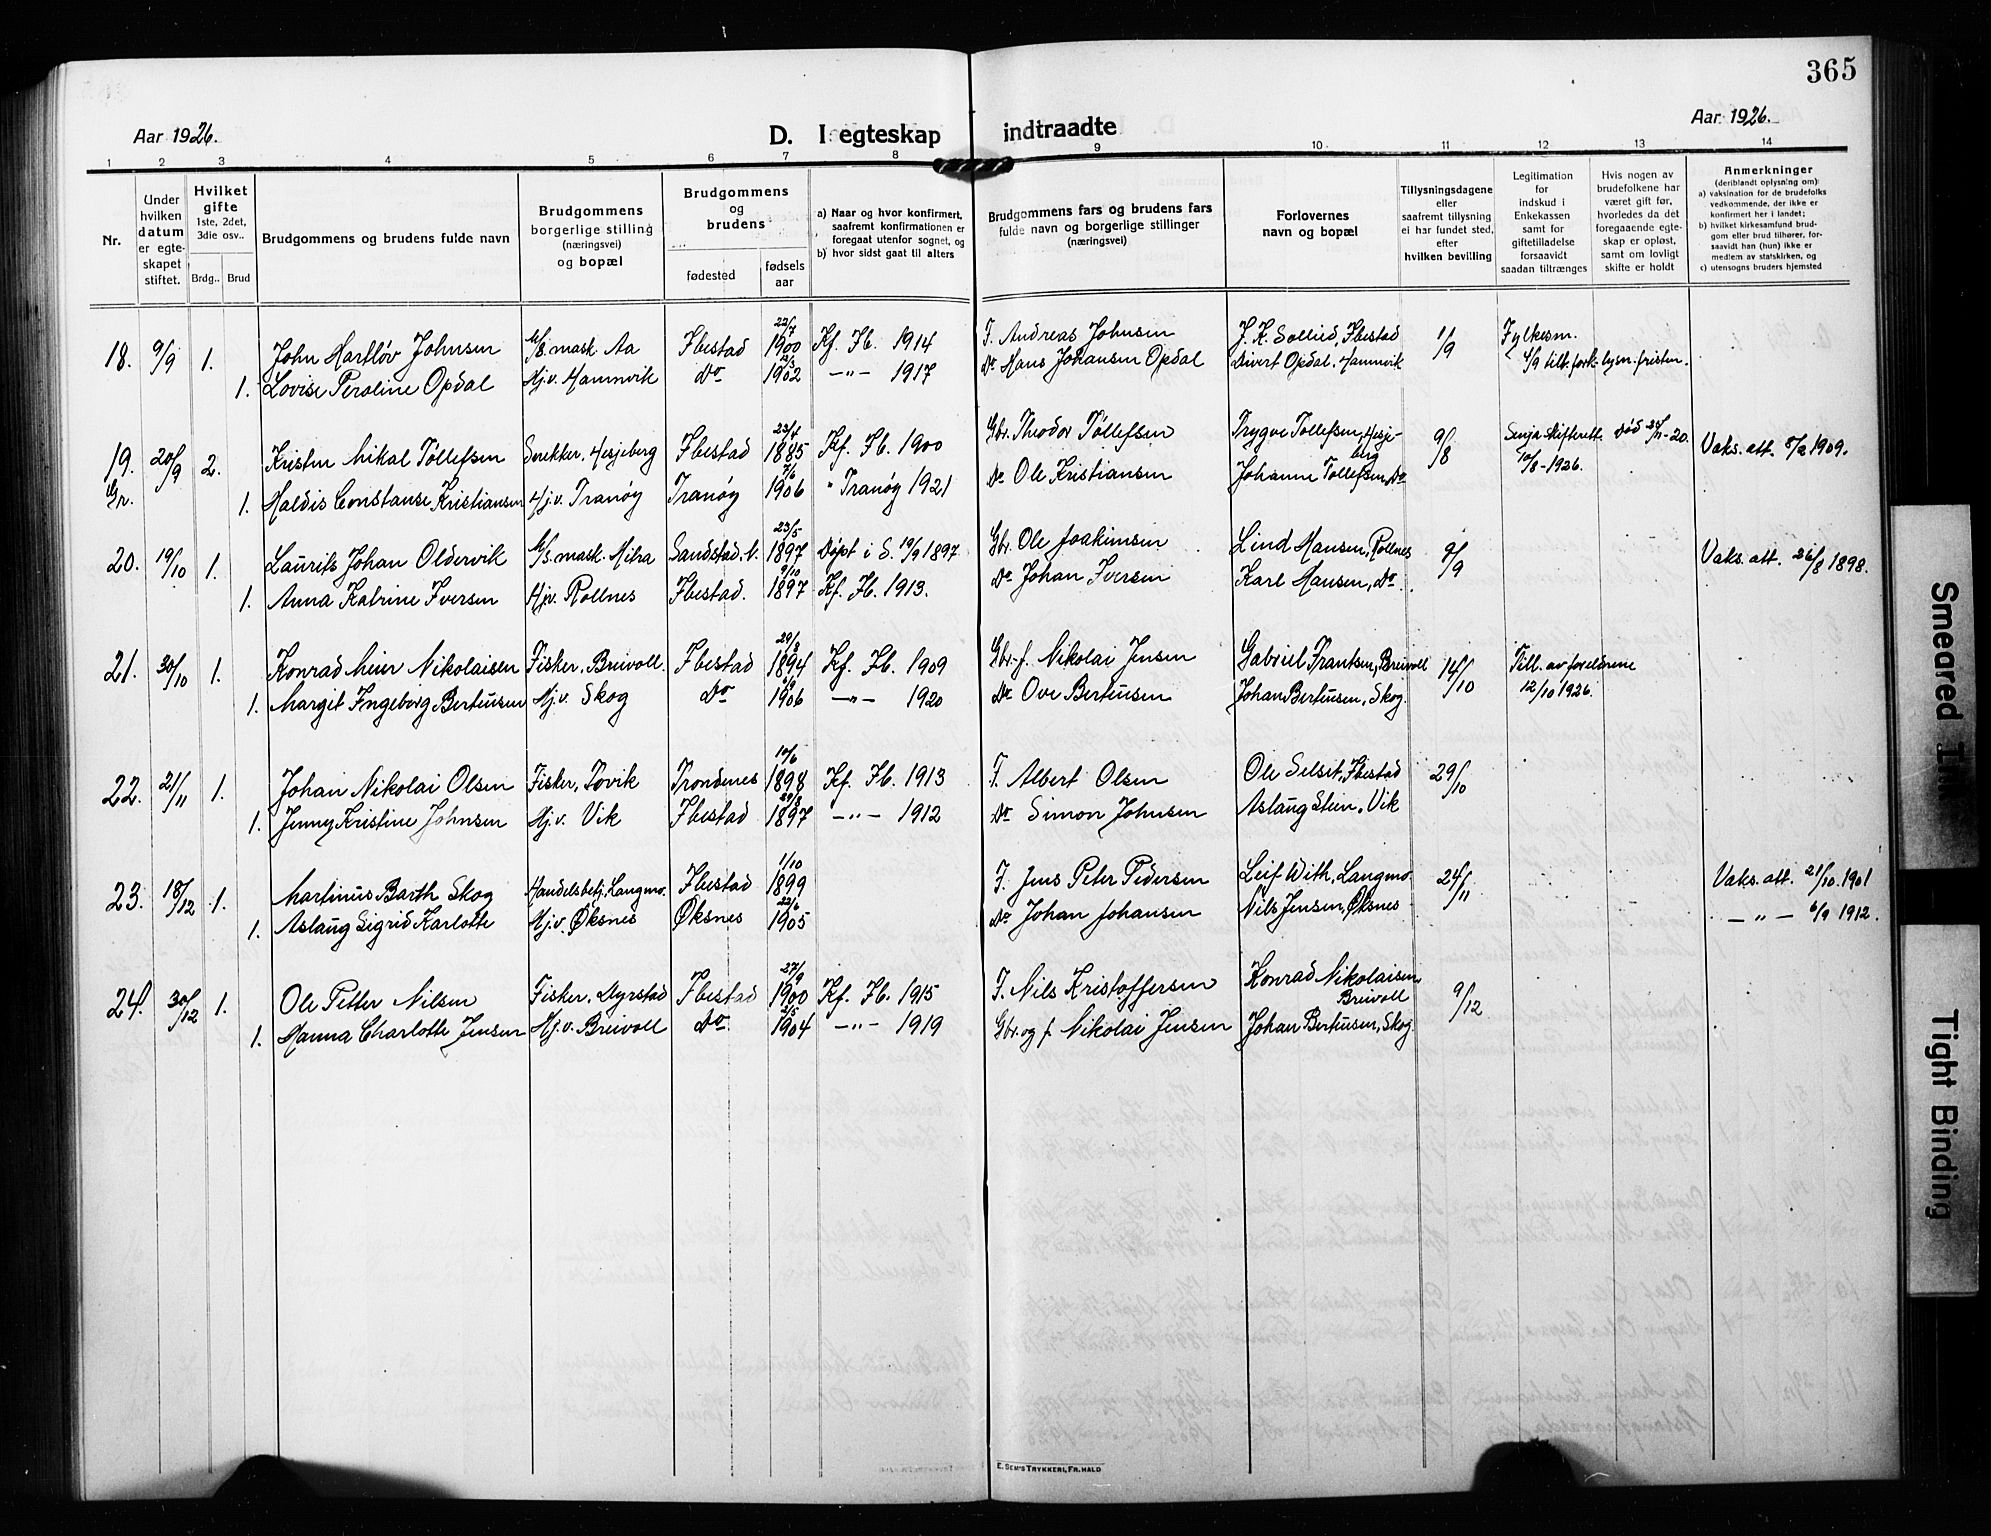 365
Aar 1926.
D. I egteskap indtraadte
Aar 1926.
1 2 3 4 5 6 7 8 9 10 11 12 13 14
Nr.
Under hvilken datum er egteskapet stiftet.
Hvilket gifte 1ste, 2det, 3die osv..
Brdg.. Brud
Brudgommens og brudens fulde navn
Brudgommens borgerlige stilling (næringsvei) og bopæl
Brudgommens og brudens
fødested
fødselsaar
a) Naar og hvor konfirmert, saafremt konfirmationen er foregaat utenfor sognet, og
b) hvor sidst gaat til alters
Brudgommens fars og brudens fars fulde navn og borgerlige stillinger (næringsvei)
Forlovernes navn og bopæl
Tillysningsdagene eller saafremt tillysning ei har fundet sted, efter hvilken bevilling
Legitimation for indskud i Enkekassen samt for giftetilladelse forsaavidt saadan tiltrænges
Hvis nogen av brudefolkene har været gift før, hvorledes da det foregaaende egteskap er opløst, samt om lovligt skifte er holdt
Anmerkninger (deriblandt oplysning om):
a) vaksination for de brudefolks vedkommende, der ikke er konfirmert her i landet;
b) hvilket kirkesamfund brudgom eller brud tilhører, forsaavidt han (hun) ikke er medlem av statskirken, og
c) utensogns bruders hjemsted
18. 9/9 1. John Hartløv Johnsen M/S. mask. Aa Ibestad 22/7 1900 Kf. Ib. 1914 F. Andreas Johnsen J. K. Sollid, Ibestad 1/9 Fylkesm.
1. Lovise Peroline Opdal Hj.v. Hamnvik Do 1902 —"— 1917 Do Hans Johansen Opdal Sivert Opdal, Hamnvik 4/9 till. fork. lysn. fristen.
19. 20/9 2. Kristen Mikal Tollefsen Snekker, Hesjeberg Ibestad 23/4 1885 Kf. Ib. 1900 Gbr. Theodor Tollefsen Trygve Tollefsen, Hesjeberg 9/8 Senja skifterett 10/8-1926. død 20. Vaks. att. 1909.
Gr. 1. Haldis Constanse Kristiansen Hj.v. Tranøy Tranøy 7/6 1906 " Tranøy 1921 Do Ole Kristiansen Johanne Tollefsen, Do
20. 19/10 1. Laurits Johan Oldervik M/S. mask. Mitra Sandstad. 23/5 1897 Døpt i S. 19/9 1897 Gbr. Ole Joakimsen Lind Hansen, Rollnes 9/9 Vaks. att. 26/8 1898.
1. Anna Katrine Iversen Hj.v. Rollnes Ibestad. 9/10 1897 Kf. Ib. 1913. Do Johan Iversen Karl Hansen, Do.
21. 30/10 1. Konrad Meier Nikolaisen Fisker, Breivoll. Ibestad 1894 Kf. Ib. 1909 Gbr.f. Nikolai Jensen Gabriel Frantsen, Breivoll 14/10 Till. av foreldrene
1. Margit Ingeborg Berteusen Hj.v. Skog Do 1906 —"— 1920 Do Ove Berteusen Johan Berteusen, Skog. 12/10 1926.
22. 21/11 1. Johan Nikolai Olsen Fisker, Tovik Trondenes 10/6 1898 Kf. Ib. 1913 F. Albert Olsen Ole Selset, Ibestad 29/10
1. Jenny Kristine Johnsen Hj.v. Vik Ibestad 1897 —"— 1912 Do Simon Johnsen Aslaug Stein, Vik
23. 18/12 1. Martinus Barth Skog Handelsbetj, Langmo. Ibestad 1/10 1899 F. Jens Peter Pedersen Leif With, Langmo. 24/11 Vaks. att. 21/10 1901
1. Aslaug Sigrid Karlotte Hj.v. Øksnes Øksnes 22/6 1905 Do Johan Johansen Nils Jensen, Øksnes —"— 6/9 1912.
24. 30/12 1. Ole Petter Nilsen Fisker, Dyrstad Ibestad 27/9 1900 Kf. Ib. 1915 F. Nils Kristoffersen Konrad Nikolaisen, Breivoll 9/12
1. Hanna Charlotte Jensen Hj.v. Breivoll Do. 1904 —"— 1919 Gbr. og f. Nikolai Jensen Johan Berteusen, Skog.
E. SEM'S TRYKKERI, FR.HALD
Smeared Ink
Tight Binding